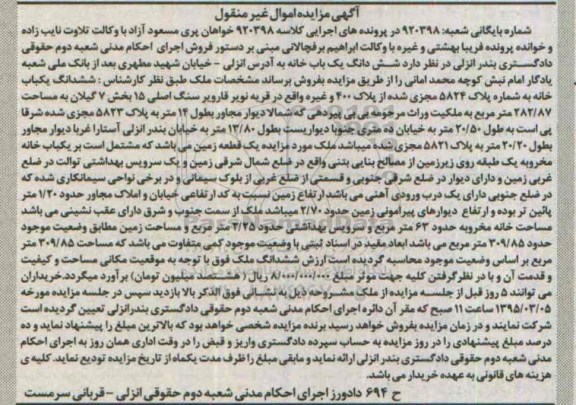 آگهی مزایده اموال غیر منقول
شماره بایگانی شعبه: ۹۲۰۳۹۸ در پرونده های اجرایی کلاسه ۹۲۰۳۹۸ خواهان پری مسعود آزاد با وکالت تلاوت نایب زاده
و خوانده پرونده فریبا بهشتی و غیره با وکالت ابراهیم برفچالانی مبنی بر دستور فروش اجرای احکام مدنی شعبه دوم حقوقی
دادگستری بندر انزلی در نظر دارد شش دانگ یک باب خانه به آدرس انزلی - خیابان شهید مطهری بعد از بانک ملی شعبه
یادگار امام نبش کوچه محمد امانی را از طریق مزایده بفروش برساند مشخصات ملک طبق نظر کارشناس : ششدانگ یکباب
خانه به شماره پلاک ۵۸۲۴ مجزی شده از پلاک ۴۰۰ و غیره واقع در قریه نویر قارویر سنگ اصلی ۱۵ بخش ۷ گیلان به مساحت
۲۸۲/۸۷ متر مربع به ملکیت وراث مرحوم بی بی پیردهی که شمالا دیوار مجاور بطول ۱۴ متر به پلاک ۵۸۲۳ مجزی شده شرقا
پی است به طول ۲۰/۵۰ متر به خیابان ده متری جنوبا دیواریست بطول ۱۳/۸۰ متر به خیابان بندر انزلی آستارا غربا دیوار مجاور
بطول ۲۰/۲۰ متر به پلاک ۵۸۲۱ مجزی شده میباشد ملک مورد مزایده یک قطعه زمین می باشد که مشتمل است بر یکباب خانه
مخروبه یک طبقه روی زیرزمین از مصالح بنایی بتنی واقع در ضلع شمال شرقی زمین و یک سرویس بهداشتی توالت در ضلع
غربی زمین و دارای دیوار در ضلع شرقی جنوبی و قسمتی از ضلع غربی از بلوک سیمانی و در برخی نواحی سیمانکاری شده که
در ضلع جنوبی دارای یک درب ورودی آهنی می باشد ارتفاع زمین نسبت به کد ارتفاعی خیابان و املاک مجاور حدود ۱/۲۰ متر
پائین تر بوده و ارتفاع دیوارهای پیرامونی زمین حدود ۲/۷۰ متر میباشد ملک از سمت جنوب و شرق دارای عقب نشینی می باشد
مساحت خانه مخروبه حدود ۶۳ متر مربع و سرویس بهداشتی حدود ۳/۲۵ متر مربع و مساحت زمین مطابق وضعیت موجود
حدود ۳۰۹/۸۵ متر مربع می باشد ابعاد مقید در اسناد ثبتی با وضعیت موجود کمی متفاوت می باشد که مساحت ۳۰۹/۸۵ متر
مربع بر اساس وضعیت موجود محاسبه گردیده است ارزش ششدانگ ملک فوق با توجه به موقعیت مکانی مساحت و کیفیت
و قدمت آن و با در نظر گرفتن کلیه جهات موثر مبلغ ۸/۰۰۰/۰۰۰/۰۰۰ ریال ( هشتصد میلیون تومان) برآورد میگردد.خریداران
می توانند ۵ روز قبل از جلسه مزایده از ملک مشروحه ذیل به نشانی فوق الذکر بالا بازدید سپس در جلسه مزایده مورخه
۱۳۹۵/۰۳/۰۵ ساعت ۱۱ صبح که مقر آن دائره اجرای احکام مدنی شعبه دوم حقوقی دادگستری بندرانزلی تعیین گردیده است
شرکت نمایند و در زمان مزایده بفروش خواهد رسید برنده مزایده شخصی خواهد بود که بالاترین مبلغ را پیشنهاد نماید و ده
درصد مبلغ پیشنهادی را در روز مزایده به حساب سپرده دادگستری واریز و قبض را در وقت اداری همان روز به اجرای احکام
مدنی شعبه دوم حقوقی دادگستری بندر انزلی ارائه نماید و مابقی مبلغ را ظرف مدت یکماه از تاریخ مزایده تودیع نماید. کلیه ی
هزینه های قانونی به عهده خریدار می باشد.
ح ۶۹۴ دادورز اجرای احکام مدنی شعبه دوم حقوقی انزلی - قربانی سرمست